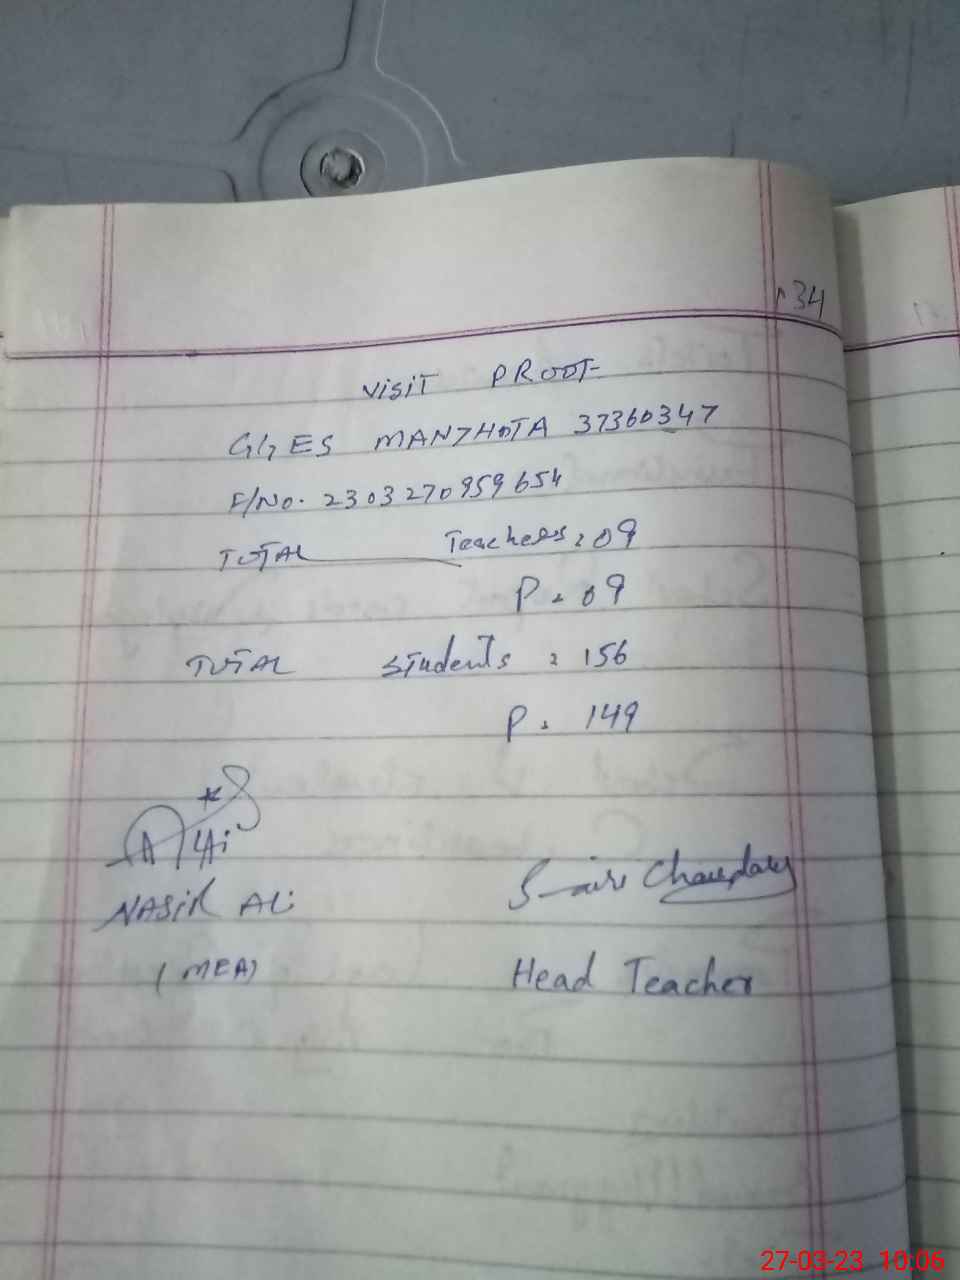 34
Visit PROOF
GGES MANJHOTA 37360347
F/No. 2303270959654
TOTAL Teachers : 09
P : 09
TOTAL Students : 156
P : 149
NASIR ALi
(MEA)
Chaudary
Head Teacher
27-03-23 10:06